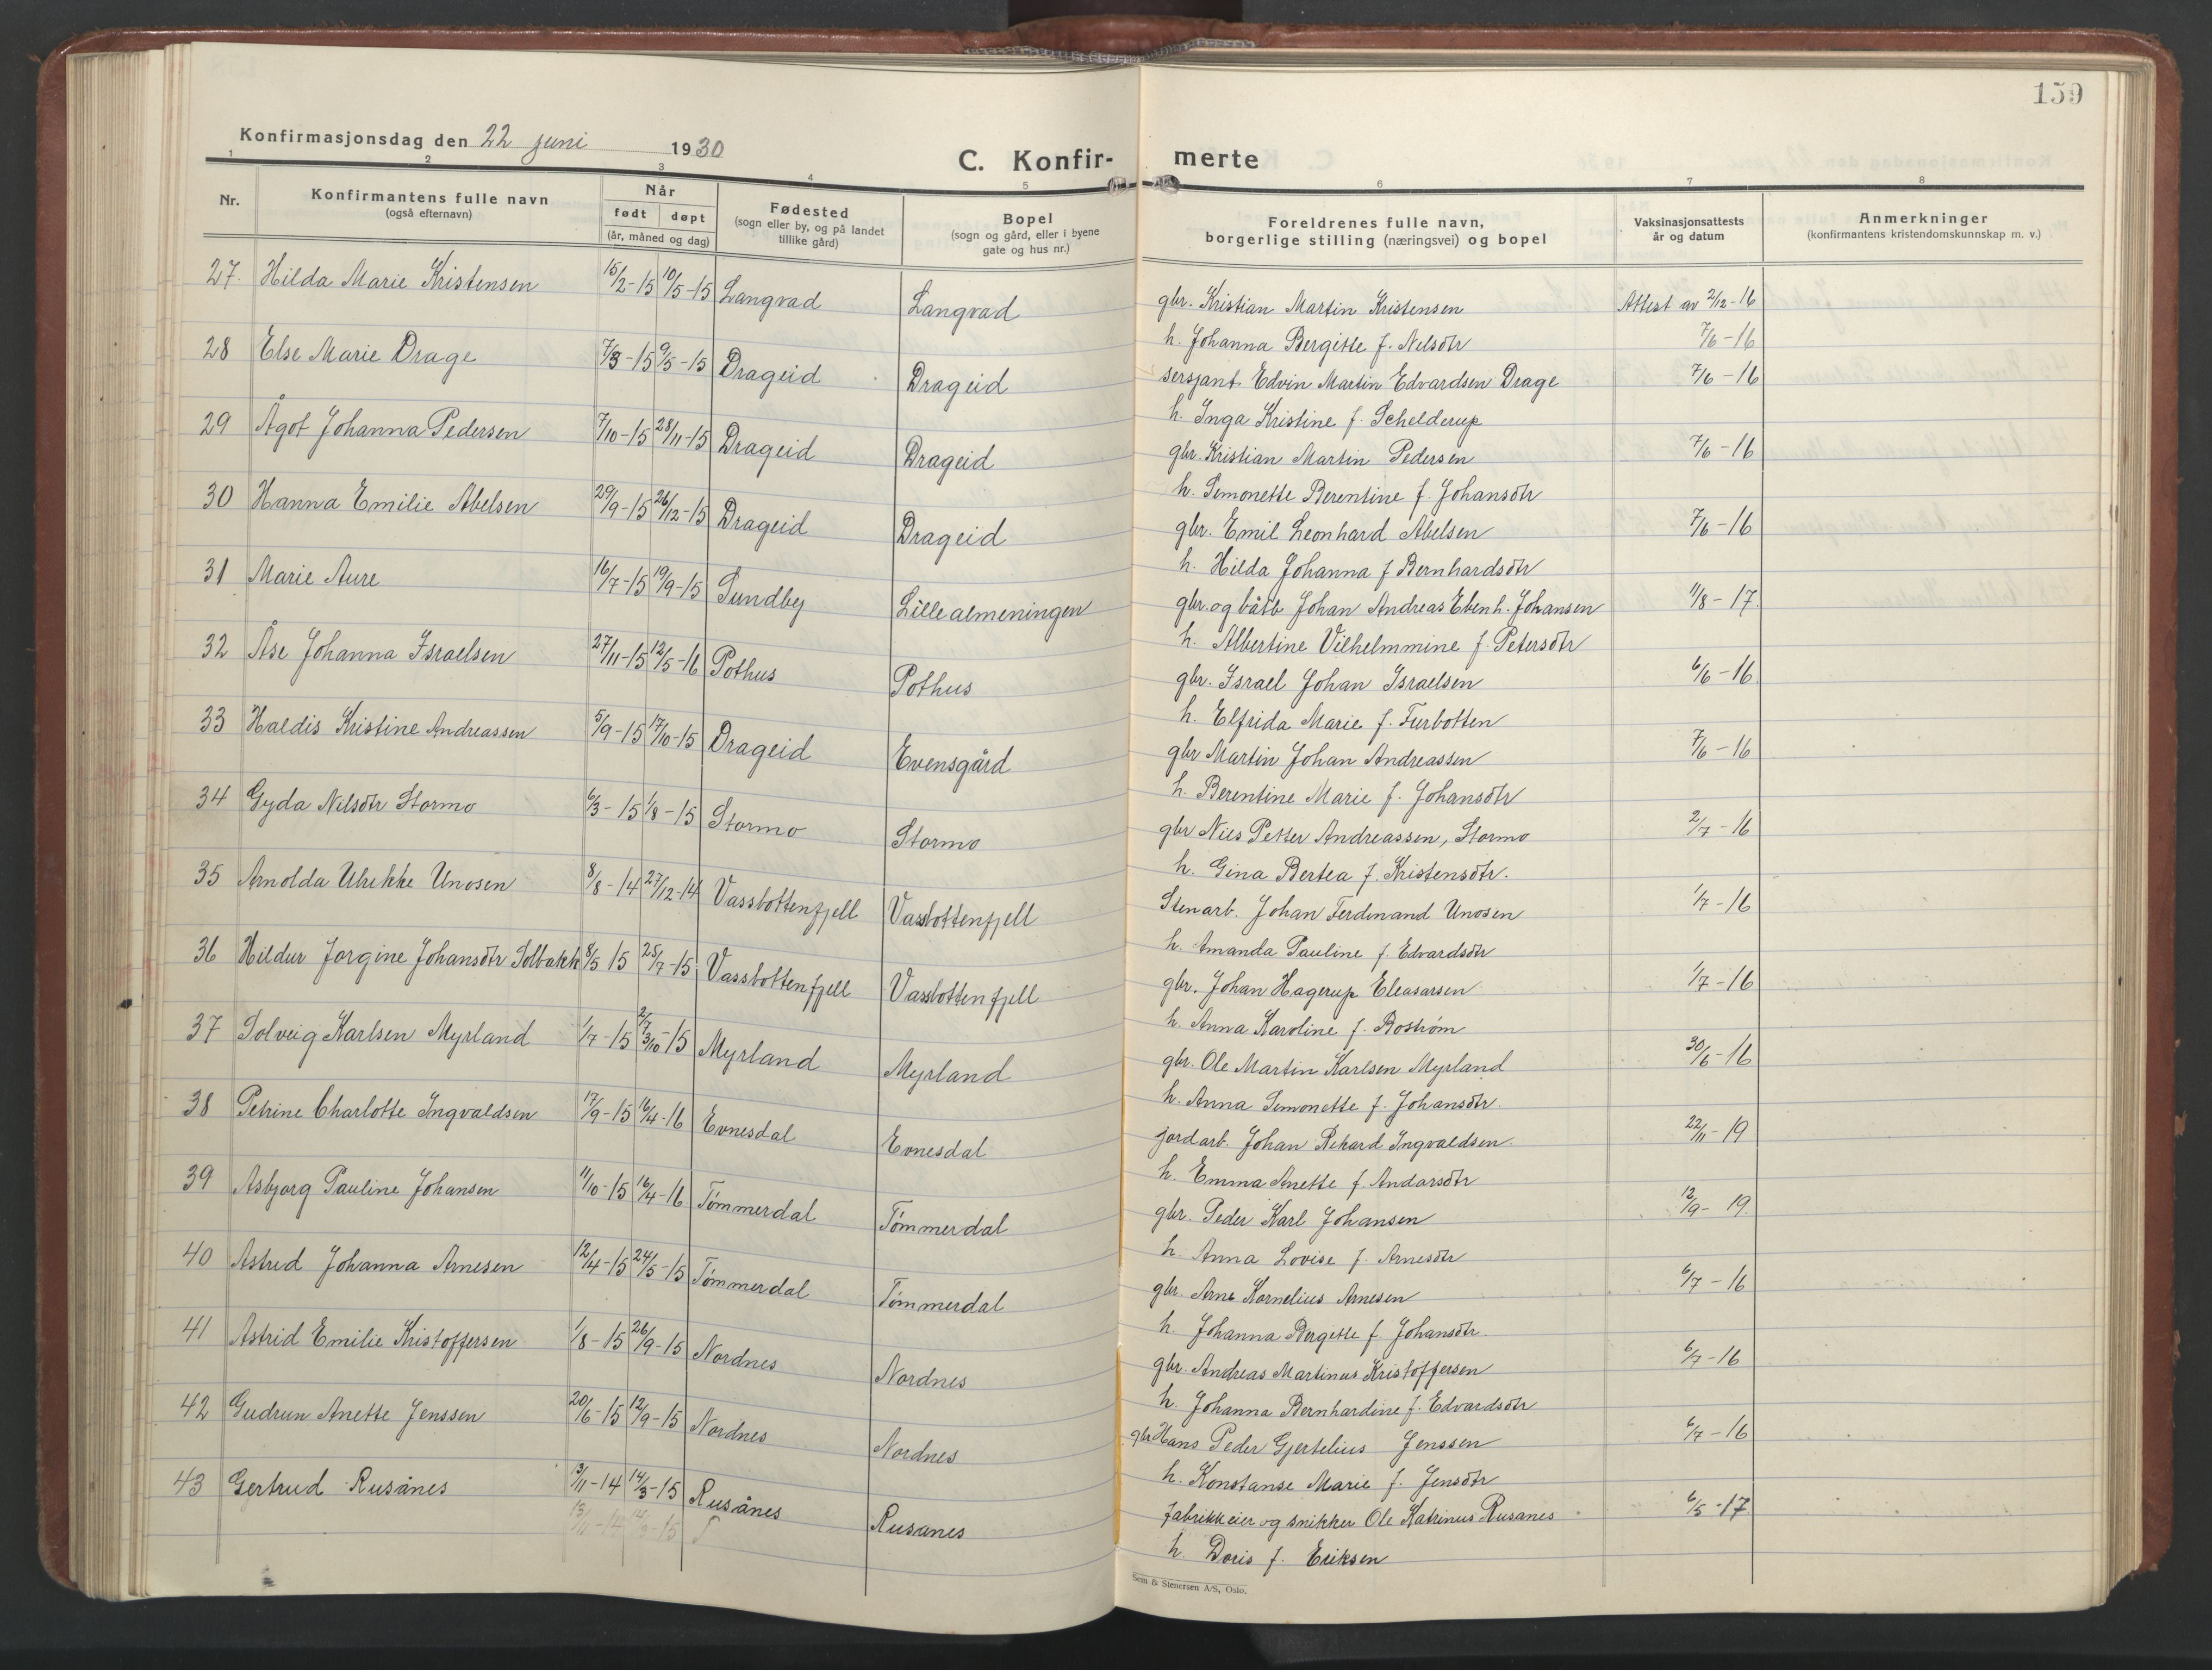 159
Konfirmasjonsdag den 22 juni 1930
C. Konfir- merte
1 2 3 4 5 6 7 8
Nr.
Konfirmantens fulle navn
(også efternavn)
Når
født døpt
(år, måned og dag)
Fødested
(sogn eller by, og på landet
tillike gård)
Bopel
(sogn og gård, eller i byene
gate og hus nr.)
Foreldrenes fulle navn,
borgerlige stilling (næringsvei) og bopel
Vaksinasjonsattests
år og datum
Anmerkninger
(konfirmantens kristendomskunnskap m. v.)
27. Hilda Marie Kristensen 15/2-15 10/5-15 Langvad Langvad gbr. Kristian Martin Kristensen Attest av 2/12-16
h. Johanna Bergitte f. Nelsdtr 7/6-16
28 Else Marie Drage 7/3-15 9/5-15 Drageid Drageid sersjant Edvin Martin Edvardsen Drage 7/6-16
h. Inga Kristine f. Schelderup
29 Ågot Johanna Pedersen 7/10-15 28/11-15 Drageid Drageid gbr. Kristian Martin Pedersen 7/6-16
h. Simonette Berentine f. Johansdtr
30 Hanna Emilie Abelsen 29/9-15 26/12-15 Drageid Drageid gbr. Emil Leonhard Abelsen 7/6-16
h. Hilda Johanna f Bernhardsdtr
31 Marie Aure 16/7-15 19/9-15 Sundby Lillealmeningen gbr. og båtb Johan Andreas Ebenh. Johansen 11/8-17.
h. Albertine Vilhelmmine f. Petersdtr
32 Åse Johanna Israelsen 27/11-15 12/5-16 Pothus Pothus gbr. Israel Johan Israelsen 6/6-16.
h. Elfrida Marie f. Furbotten
33 Haldis Kristine Andreassen 5/9-15 17/10-15 Drageid Evensgård gbr Martin Johan Andreassen 7/6-16
h. Berentine Marie f. Johansdtr
34 Gyda Nilsdtr Stormo 6/3-15 1/8-15 Stormo Stormo gbr Nils Petter Andreassen, Stormo 2/7-16
h. Gina Bertea f. Kristensdtr.
35 Arnolda Ulrikke Unosen 8/8-14 27/12-14 Vassbottenfjell Vassbottenfjell Stenarb. Johan Ferdinand Unosen 1/7-16
h. Amanda Pauline f. Edvardsdtr
36 Hildur Jorgine Johansdtr Solbakk 8/5 15 25/7-15 Vassbottenfjell Vassbottenfjell gbr. Johan Hagerup Eleasarsen 1/7-16
h. Anna Karoline f. Bostrøm
37 Solveig Karlsen Myrland 1/7-15 3/10-15 Myrland Myrland gbr. Ole Martin Karlsen Myrland 30/6-16
h. Anna Simonette f. Johansdtr.
38 Petrine Charlotte Ingvaldsen 17/9-15 16/4-16 Evnesdal Evnesdal jordarb. Johan Rikard Ingvaldsen 22/11-19
h. Emma Anette f. Andorsdtr
39 Asbjorg Pauline Johansen 11/10-15 16/4-16 Tömmerdal Tömmerdal gbr. Peder Karl Johansen 12/9-19.
h. Anna Lovise f. Arnesdtr
40 Astrid Johanna Arnesen 12/4-15 24/5-15 Tömmerdal Tömmerdal gbr. Arne Kornelius Arnesen 6/7-16
h. Johanna Bergitte f. Johansdtr.
41 Astrid Emilie Kristoffersen 1/8-15 26/9-15 Nordnes Nordnes gbr. Andreas Martinus Kristoffersen 6/7-16
h. Johanna Bernhardine f. Edvardsdtr
42 Gudrun Anette Jenssen 20/6-15 12/9-15 Nordnes Nordnes gbr Hans Peder Gjertelius Jenssen 6/7-16
h. Konstanse Marie f. Jensdtr
43 Gertrud Rusånes 13/11-14 14/3-15 Rusånes Rusanes fabrikkeier og snikker Ole Katrinus Rusanes 6/5-17
h. Doris f. Eriksen
Sem & Stenersen A/S, Oslo.